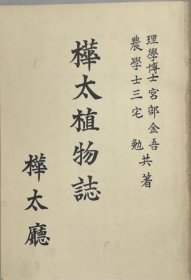 理學博士 宮部金吾
農學士 三宅勉 共著
樺太植物誌
樺太廳